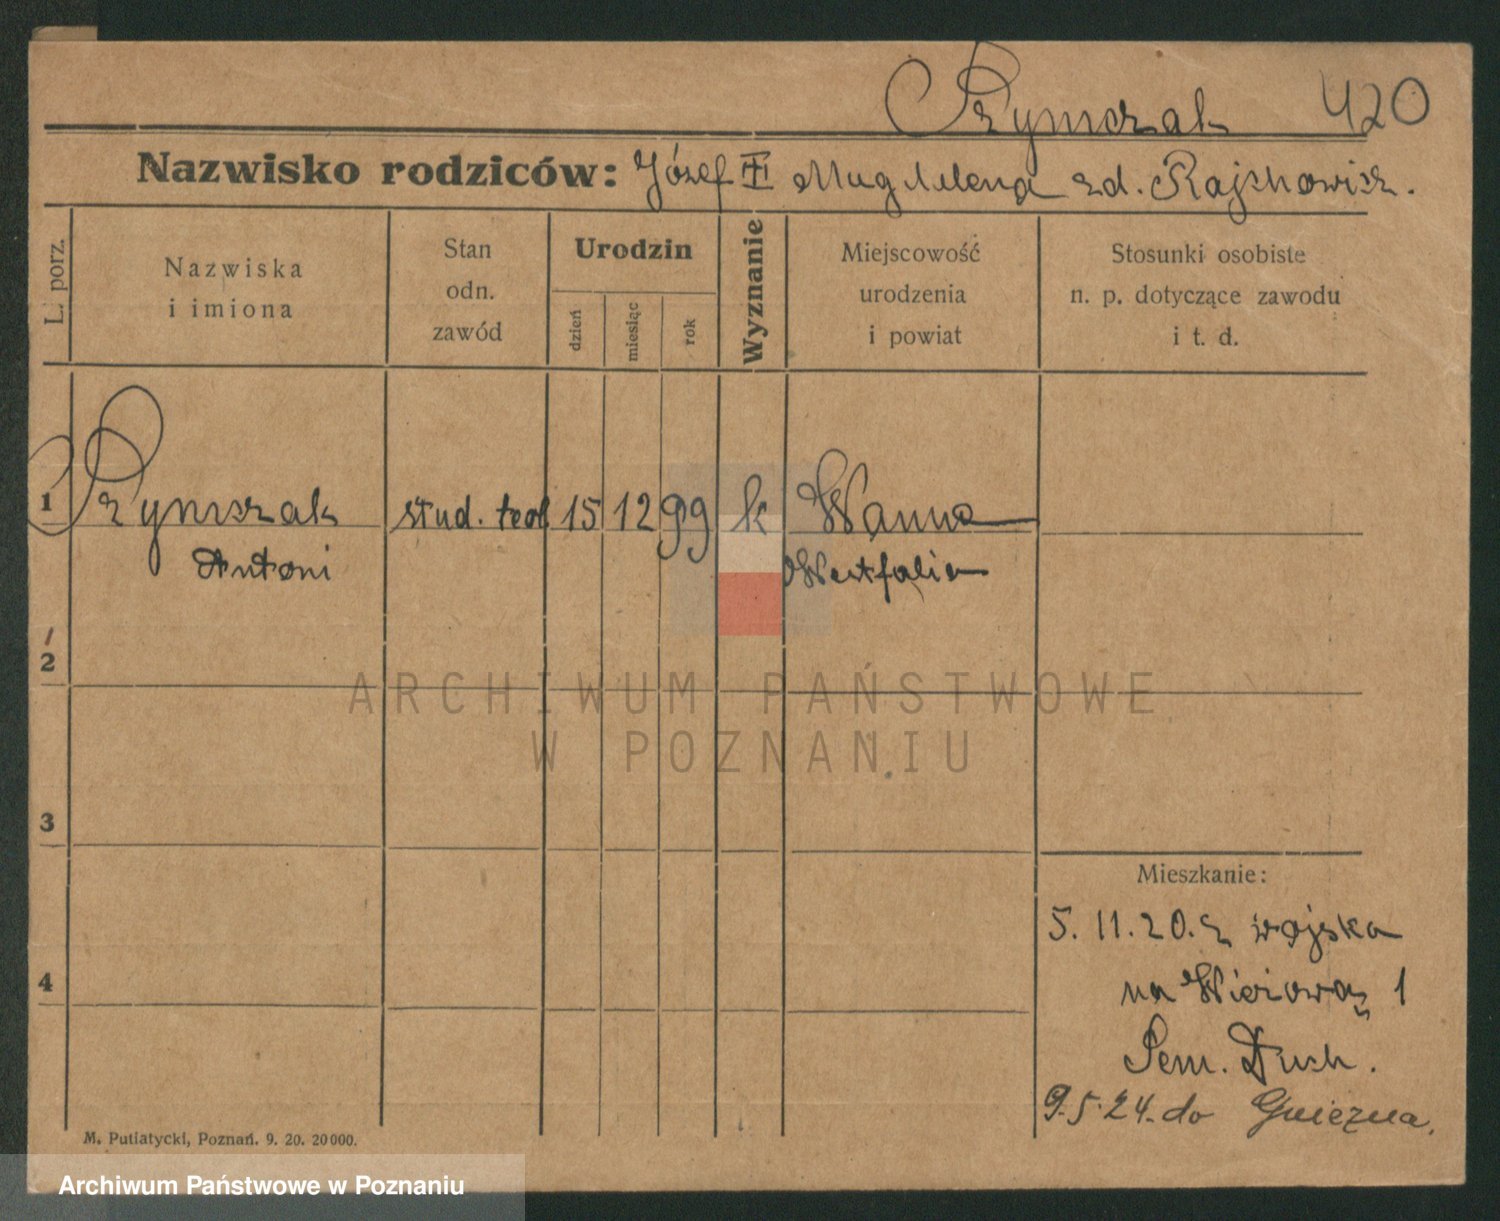 Rymczak 420
Nazwisko rodziców: Józef Magdalena zd.
L. porz.
Nazwiska
i imiona
Stan
odn.
zawód
Urodzin
dzień
miesiąc
rok
Wyznanie
Miejscowość
urodzenia
i powiat
Stosunki osobiste
n. p. dotyczące zawodu
i t. d.
1 Rymczak stud. teol 15 12 99 k Wanna
Antoni Westfalia
2
ARCHIWUM PAŃSTWOWE
W POZNANIU
3
Mieszkanie:
5. 11. 20. z wojska
4
na Wieżową 1
Sem. Duch.
9. 5. 24. do Gniezna.
M. Putiatycki, Poznań. 9. 20. 20000.
Archiwum Państwowe w Poznaniu